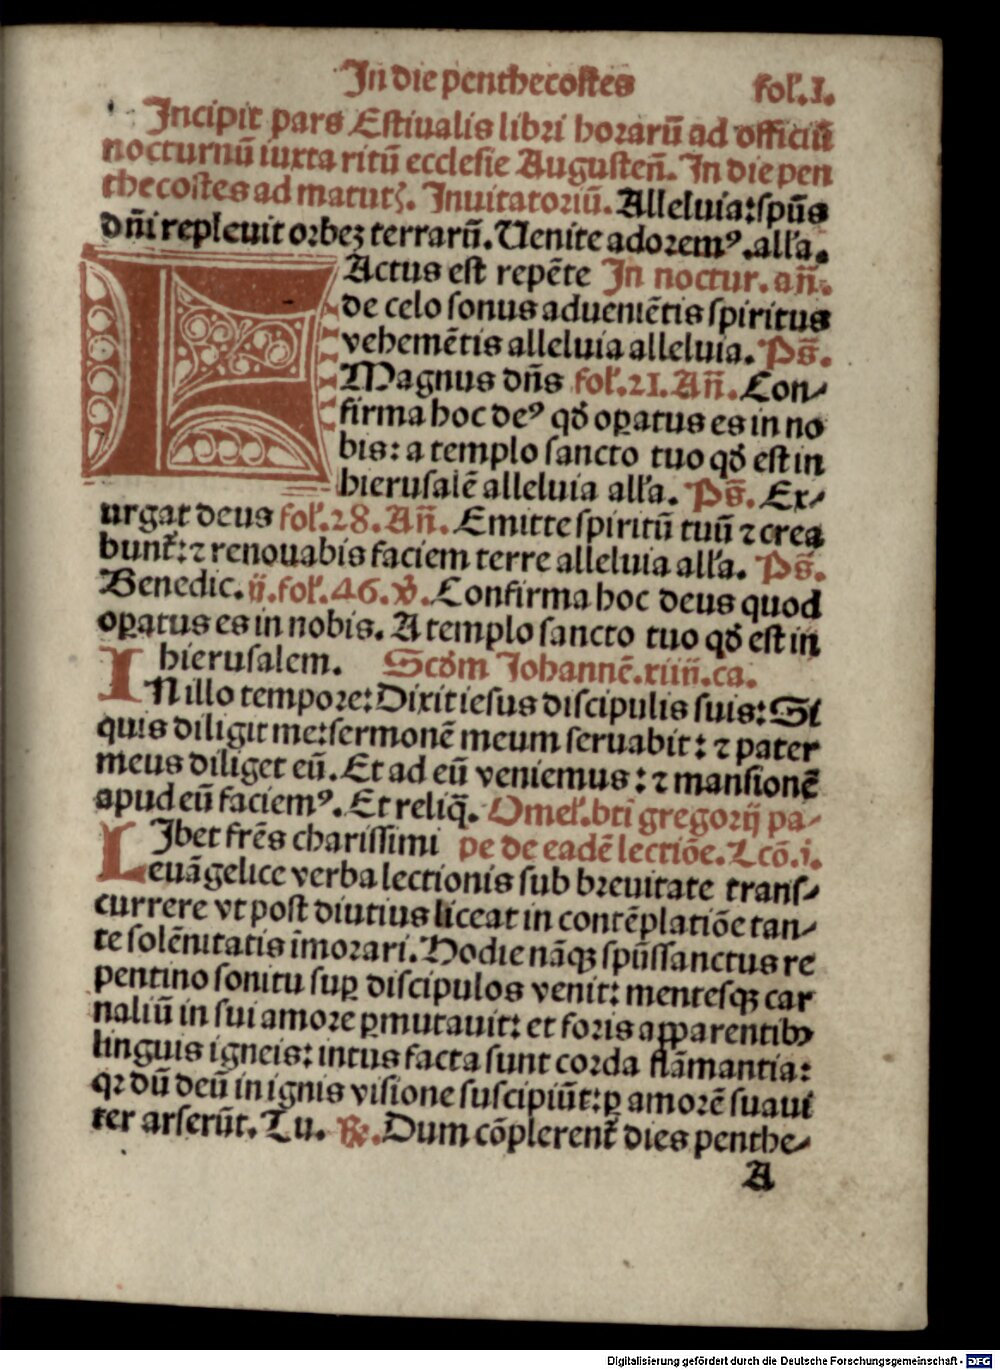 In die penthecostes fol'.I.
Incipit pars Estiualis libri horarū ad officiū
nocturnū iuxta ritū ecclesie Augusteñ. In die pen
thecostes ad matutꝭ. Inuitatoriū. Alleluia: spūs
dñi repleuit orbeꝫ terrarū. Uenite adoremꝰ. all'a.
FActus est repēte In noctur. añ.
de celo sonus aduenīētis spiritus
vehemētis alleluia alleluia. Ps̄.
Magnus dñs fol'.21. Añ. Con⸗
firma hoc deꝰ qđ oꝑatus es in no
bis: a templo sancto tuo qđ est in
hierusalē alleluia all'a. Ps̄. Ex⸗
urgat deus fol'.28. Añ. Emitte spiritū tuū ⁊ crea
bunt̄: ⁊ renouabis faciem terre alleluia all'a. Ps̄.
Benedic. ij. fol'.46. ℣. Confirma hoc deus quod
oꝑatus es in nobis. A templo sancto tuo qđ est in
hierusalem. Scđm Johannē. xiiij. ca.
IN illo tempore: Dixit iesus discipulis suis: Si
quis diligit me: sermonē meum seruabit: ⁊ pater
meus diliget eū. Et ad eū veniemus: ⁊ mansionē
apud eū faciemꝰ. Et reliq̄. Omel'. bti gregorij pa⸗
LIbet frēs charissimi pe de eadē lectiōe. Lcō. i.
euāgelice verba lectionis sub breuitate trans⸗
currere vt post diutius liceat in contēplatiōe tan⸗
te solēnitatis īmorari. Hodie nāqꝫ spūssanctus re
pentino sonitu suꝑ discipulos venit: mentesqꝫ car
naliū in sui amore ꝑmutauit: et foris apparentibꝰ
linguis igneis: intus facta sunt corda flāmantia:
qꝛ dū deū in ignis visione suscipiūt: ꝑ amorē suaui
ter arserūt. Tu. ℟. Dum cōplerent̄ dies penthe⸗
A
Digitalisierung gefördert durch die Deutsche Forschungsgemeinschaft - DFG